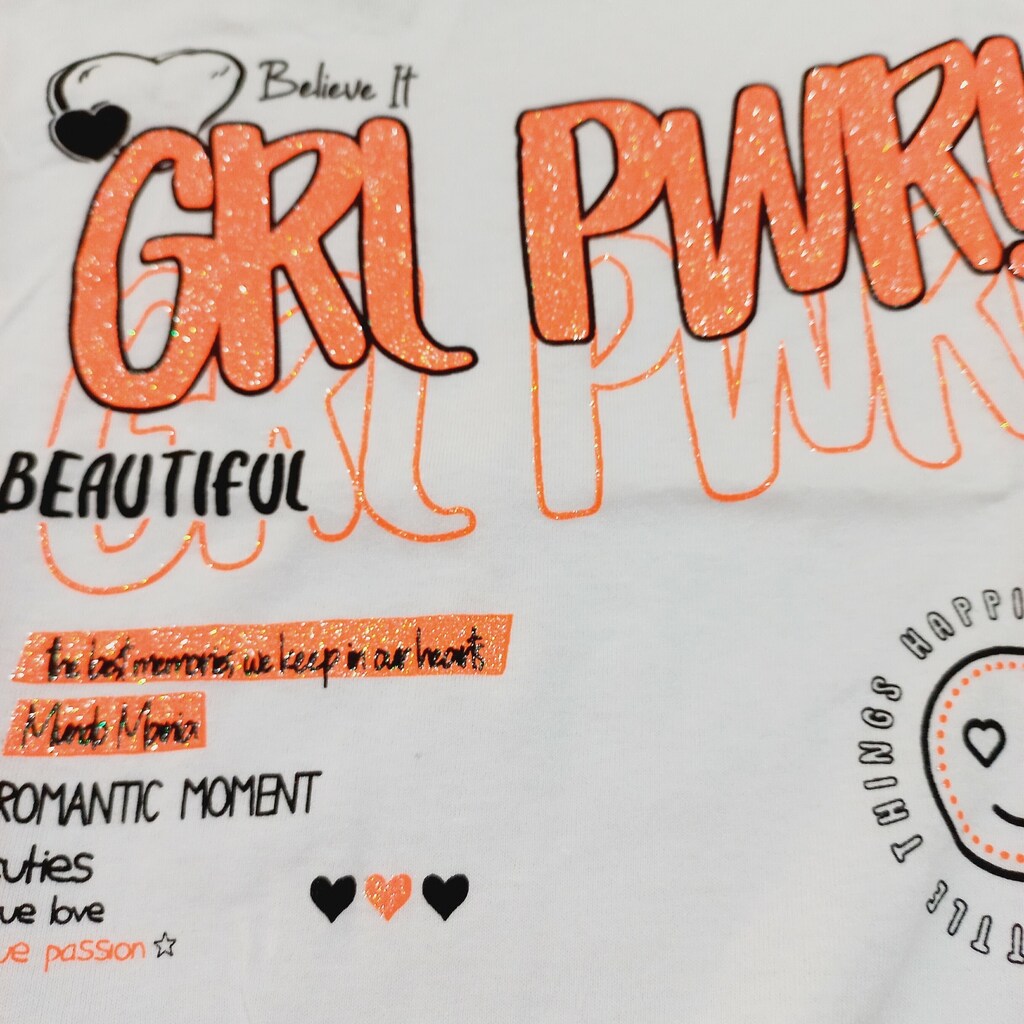 Believe It
GRL PWR!
GRL PWR!
BEAUTIFUL
the best memories, we keep in our hearts
Mundo Mania
ROMANTIC MOMENT
cuties
love
passion
THINGS HAPPI
TTLE